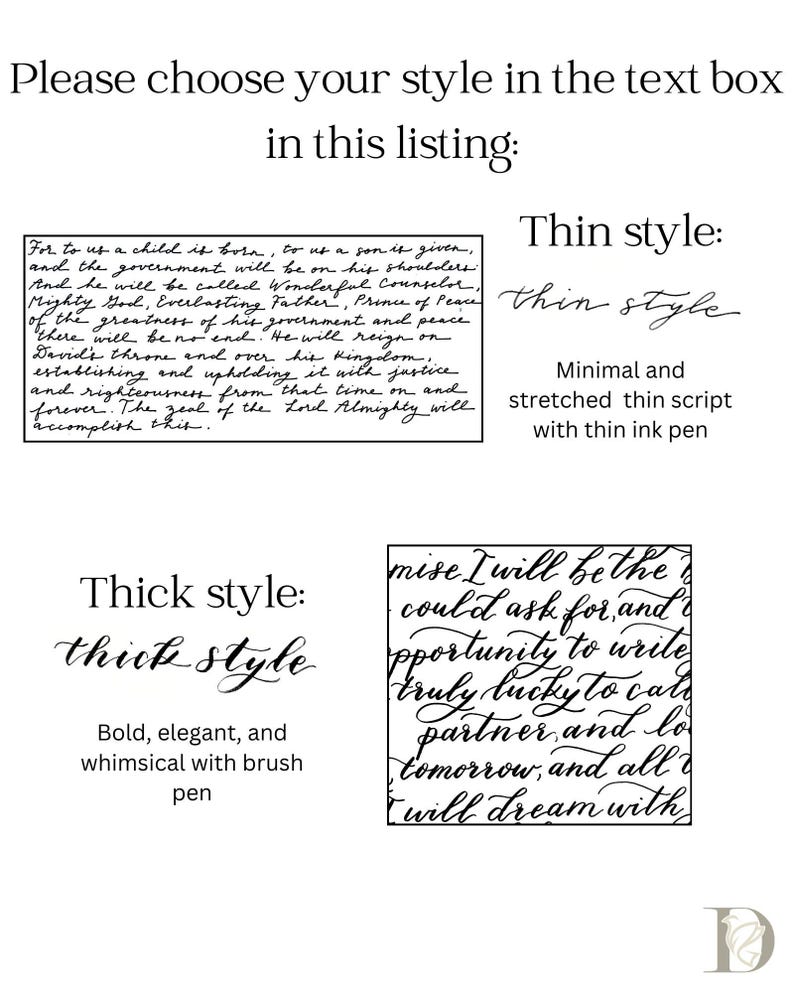 Please choose your style in the text box
in this listing:
For to us a child is born, to us a son is given,
and the government will be on his shoulders.
And he will be called Wonderful Counselor,
Mighty God, Everlasting Father, Prince of Peace
of the greatness of his government and peace
there will be no end. He will reign on
David's throne and over his kingdom,
establishing and upholding it with justice
and righteousness from that time on and
forever. The zeal of the Lord Almighty will
accomplish this.
Thin style:
thin style
Minimal and
stretched thin script
with thin ink pen
Thick style:
thick style
Bold, elegant, and
whimsical with brush
pen
mise I will be the
could ask for, and
pportunity to write
truly lucky to call
partner, and lo
tomorrow, and all
I will dream with
D